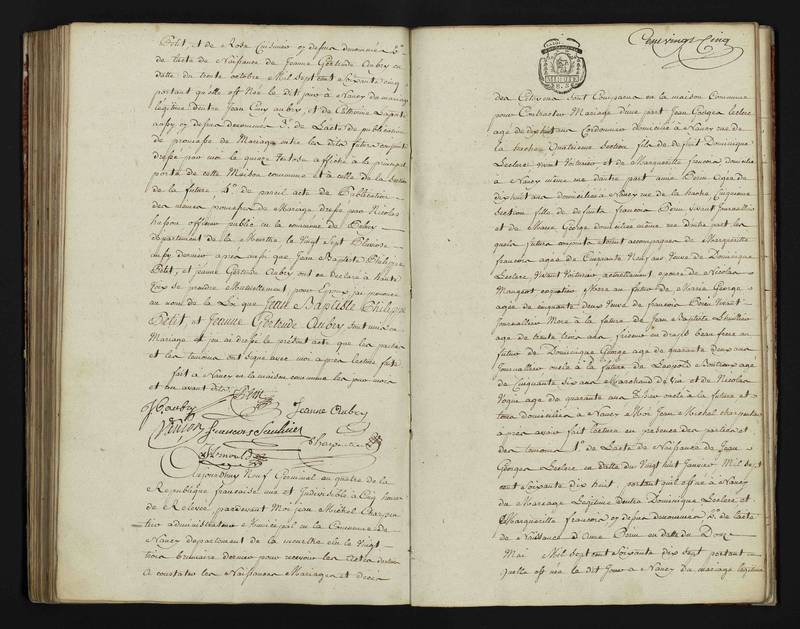 Petit, et de Rose Cuisinier cy dessus denommés 2°.
de L'acte de Naissance de Jeanne Gertrude Aubry en
datte du trente octobre Mil sept cent soixante cinq
portant qu'elle est Née le dit jour à Nancy du mariage
légitime d'entre Jean Cury aubry, et de Catherine
aussy cy dessus denommés 3°. de L'acte de publication
de promesse de Mariage entre les dits futurs conjoints
dressé par moi le quatorze Ventose affiché à la principale
porte de cette Maison commune et à celle de la section
de la future 4°. de pareil acte de Publication
des memes promesses de Mariage dressé par Nicolas
husson officier public en la commune de
département de la Meurthe, le Vingt Sept Pluviose
aussy dernier apres aussi que Jean Baptiste Philippe
Petit, et jeanne Gertrude Aubry ont eu déclaré à haute
voix se prendre Mutuellement pour Epoux j'ai prononcé
au nom de la Loi que Jean Baptiste Philippe
Petit, et Jeanne Gertrude Aubry sont unis en
Mariage et j'ai dressé le présent acte que les parties
et les temoins ont signé avec moi après lecture faite
fait à Nancy en la maison commune les jour mois
et an avant dits Petit
J C aubry Jeanne Aubry
francois Saulnier
Charpentier
Aujourdhuy Neuf Germinal an quatre de la
République francaise une et Indivisible à Cinq heures
de Relevée, pardevant Moi jean Michel Charpen
tier administrateur Municipal en la Commune de
Nancy département de la meurthe élu le Vingt
trois brumaire dernier pour recevoir les actes destinés
a constater les Naissances Mariages et décès
Cent vingt Cinq
des Citoyens sont Comparus en la maison Commune
pour Contracter Mariage d'une part Jean Georges leclerc
agé de dix huit ans Cordonnier domicilié à Nancy rue de
la hache quatrieme Section fils de defunt Dominique
Leclerc vivant Voiturier et de Marguerite francois domiciliée
à Nancy même rue d'autre part anne Perin agée de
dix huit ans domiciliée à Nancy rue de la hache, Cinquieme
Section fille de defunts francois Perin vivant Journallier
et de Marie George domiciliée même rue d'autre part les
quels futurs conjoints étoient accompagnés de Marguerite
francois agée de Cinquante Neuf ans Veuve de Dominique
Leclerc, Vivant Voiturier, actuellement epouse de Nicolas
Mangeot coquetier Mere au futur de Marie George
agée de cinquante deux Veuve de francois Perin Vivant
Journallier Mere à la future de Jean Baptiste
agé de trente trois ans friseur en draps beau frere au
futur de Dominique George agé de quarante deux ans
Journallier oncle à la future de Leopold agé
de Cinquante six ans Marchand de vin et de Nicolas
agé de quarante ans oncle à la future et
tous domiciliés à Nancy Moi Jean Michel charpentier
après avoir fait lecture en présence des parties et
des temoins 1°. de L'acte de Naissance de Jean
Georges Leclerc en datte du Vingt huit Janvier Mil sept
cent Soixante dix huit, portant qu'il est né à Nancy
du Mariage Légitime d'entre Dominique Leclerc et
Marguerite francois cy dessus denommés 2°. de L'acte
de Naissance d'Anne Perin en datte du Douze
Mai Mil sept cent Soixante dix sept portant
quelle est née le dit Jour à Nancy du mariage légitime